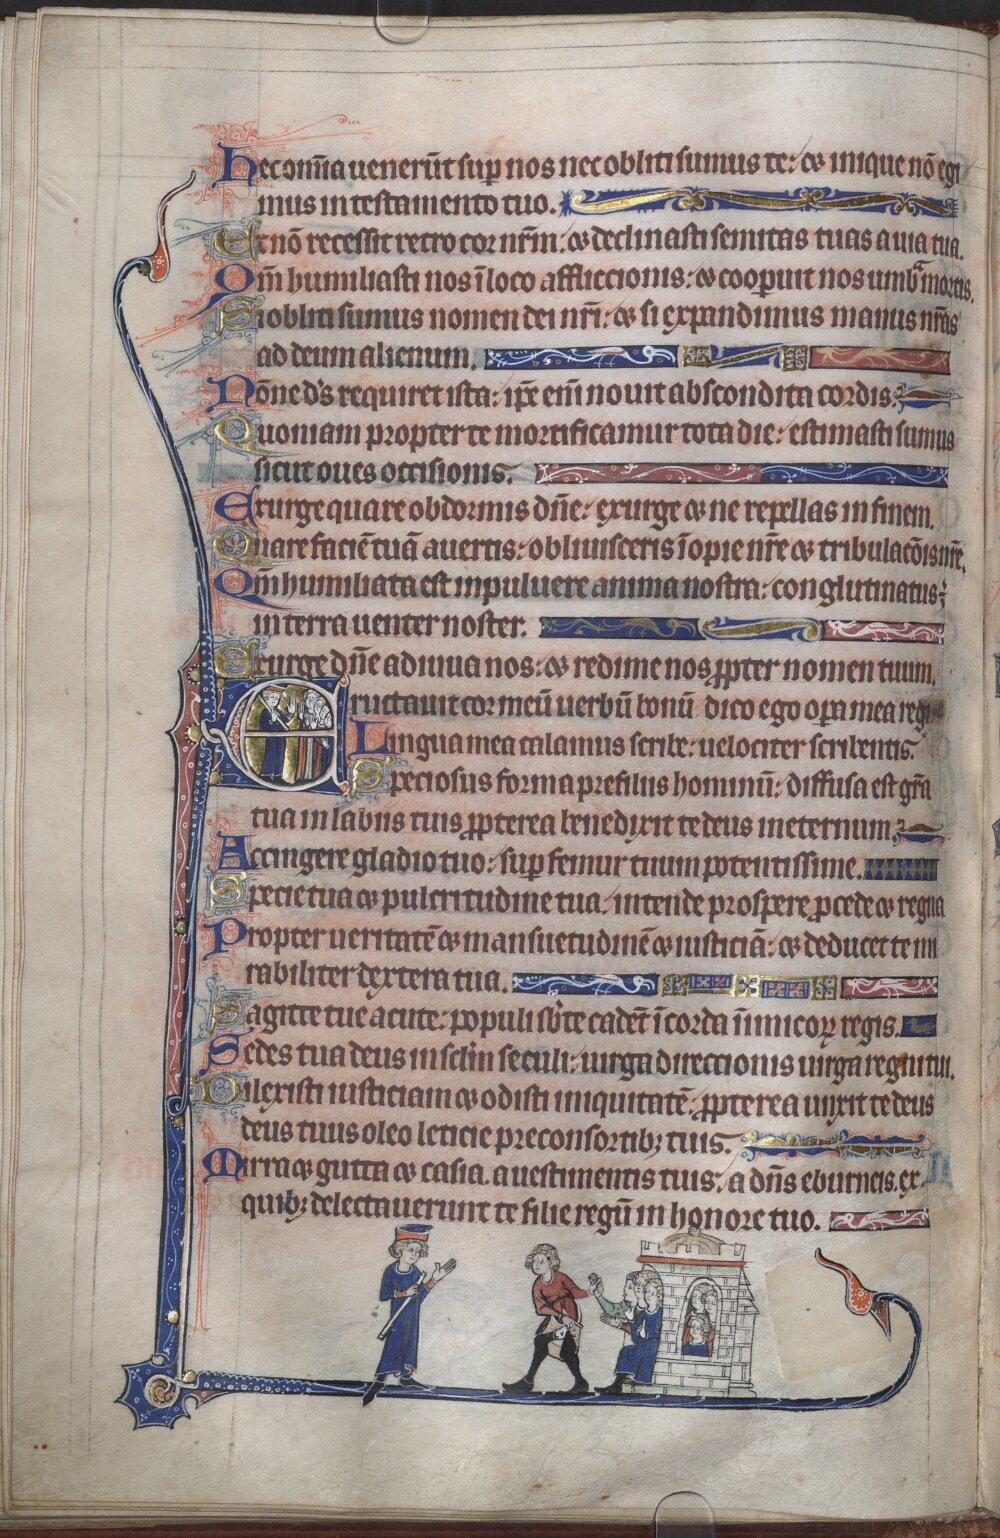 Hec om̅ia uenerūt sup̱ nos nec obliti sumus te: ⁊ inique nō egi
mus in testamento tuo.
Et nō recessit retro cor nr̅m: ⁊ declinasti semitas tuas a uia tua.
Qm̅ humiliasti nos ī loco affliccionis: ⁊ cooꝑuit nos umbᵃ mortis.
Si obliti sumus nomen dei nr̅i: ⁊ si expandimus manus nr̅as
ad deum alienum.
Nōne ds̅ requiret ista: ip̅e eni̅ nouit abscondita cordis.
Quoniam propter te mortificamur tota die: estimati sumus
sicut oues occisionis.
Exurge quare obdormis dn̅e: exurge ⁊ ne repellas in finem.
Quare faciē tuā auertis: obliuisceris īopie nr̅e ⁊ tribulacōis nr̅e.
Qm̅ humiliata est in puluere anima nostra: conglutinatus ē
in terra uenter noster.
Exurge dn̅e adiuua nos: ⁊ redime nos ꝓpter nomen tuum.
Eructauit cor meū uerbū bonū dico ego oꝑa mea regi
Lingua mea calamus scribe: uelociter scribentis.
Speciosus forma pre filiis hominū: diffusa est gr̅a
tua in labiis tuis ꝓpterea benedixit te deus in eternum.
Accingere gladio tuo: suꝑ femur tuum potentissime.
Specie tua ⁊ pulcritudine tua. intende prospere ꝓcede ⁊ regna
Propter ueritatē ⁊ mansuetudinē ⁊ iusticiā: ⁊ deducet te mi
rabiliter dextera tua.
Sagitte tue acute: populi sb̅ te cadēt ī corda inimicoꝝ regis.
Sedes tua deus in sclm̅ seculi: uirga direccionis uirga regni tui.
Dilexisti iusticiam ⁊ odisti iniquitatē: ꝓpterea unxit te deus
deus tuus oleo leticie pre consortibꝫ tuis.
Mirra ⁊ gutta ⁊ casia. a uestimentis tuis: a dn̅s eburneis. ex
quibꝫ delectauerunt te filie regū in honore tuo.